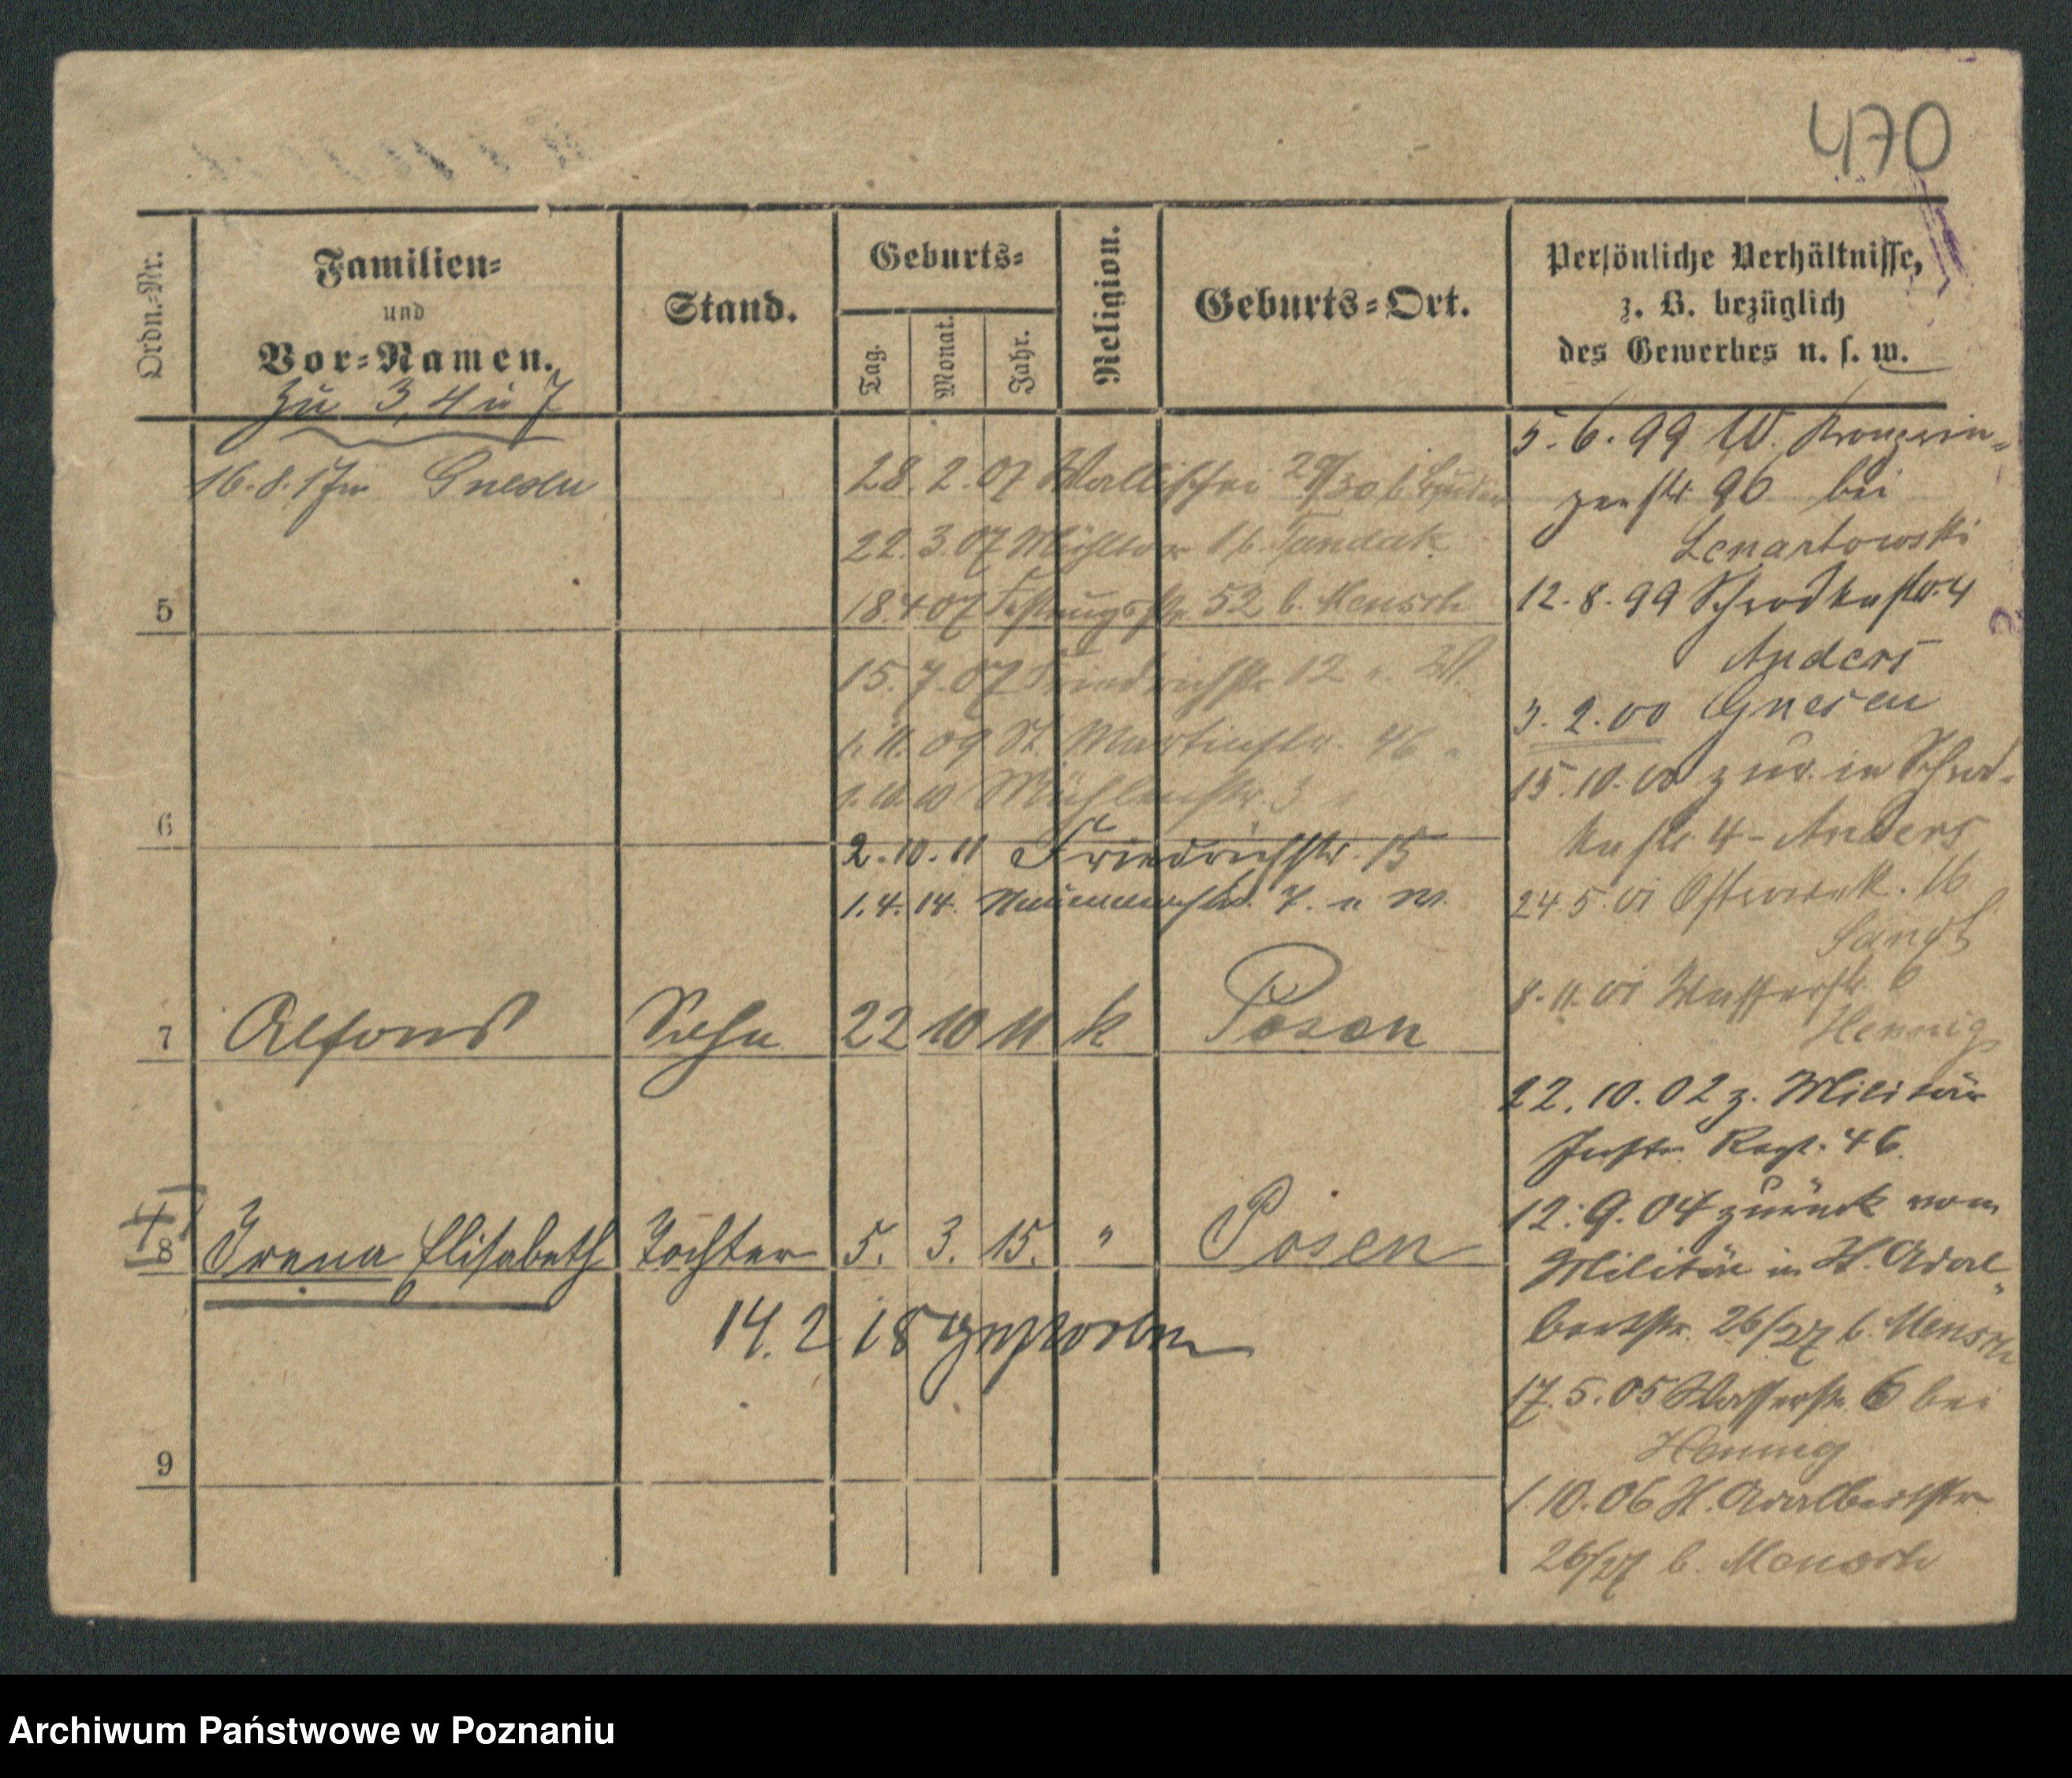 470
Ordn.-Nr.
Familien-
und
Vor-Namen.
Stand.
Geburts-
Tag.
Monat.
Jahr.
Religion.
Geburts-Ort.
Persönliche Verhältnisse,
z. B. bezüglich
des Gewerbes u. s. w.
zu 3, 4 u 7
16.8.17 in Gnesen
28.2.07 Wallischei 29/30 b.
22.3.07 Mühltor 1 b. Tandak
5
18.4.07 Festungsstr. 52 b. Mensch
15.7.07 Friedrichstr. 12 " W.
1.11.09 St. Martinstr. 46 "
6
1.10.10 Mühlenstr. 3 "
2.10.11 Friedrichstr. 15
1.4.14. 7. u W.
7 Alfons Sohn 22 10 11 k Posen
8 Irena Elisabeth Tochter 5. 3. 15. " Posen
14.2 18 gestorben
9
5.6.99 W. Kronprin-
zenstr 96 bei
Lenartowski
12.8.99 Schrodkastr. 4
Anders
3.2.00 Gnesen
15.10.00 zur. in Schrod-
kastr 4 - Anders
24.5.01 16
8.11.01 Wasserstr. 6
Hennig
22.10.02 z. Militär
Inftr. Regt. 46.
12.9.04 zurück vom
Militär in H. Adal-
bertstr. 26/27 b. Mensch
17.5.05 Wasserstr. 6 bei
Hennig
1.10.06 H. Adalbertstr.
26/27 b. Mensch
Archiwum Państwowe w Poznaniu